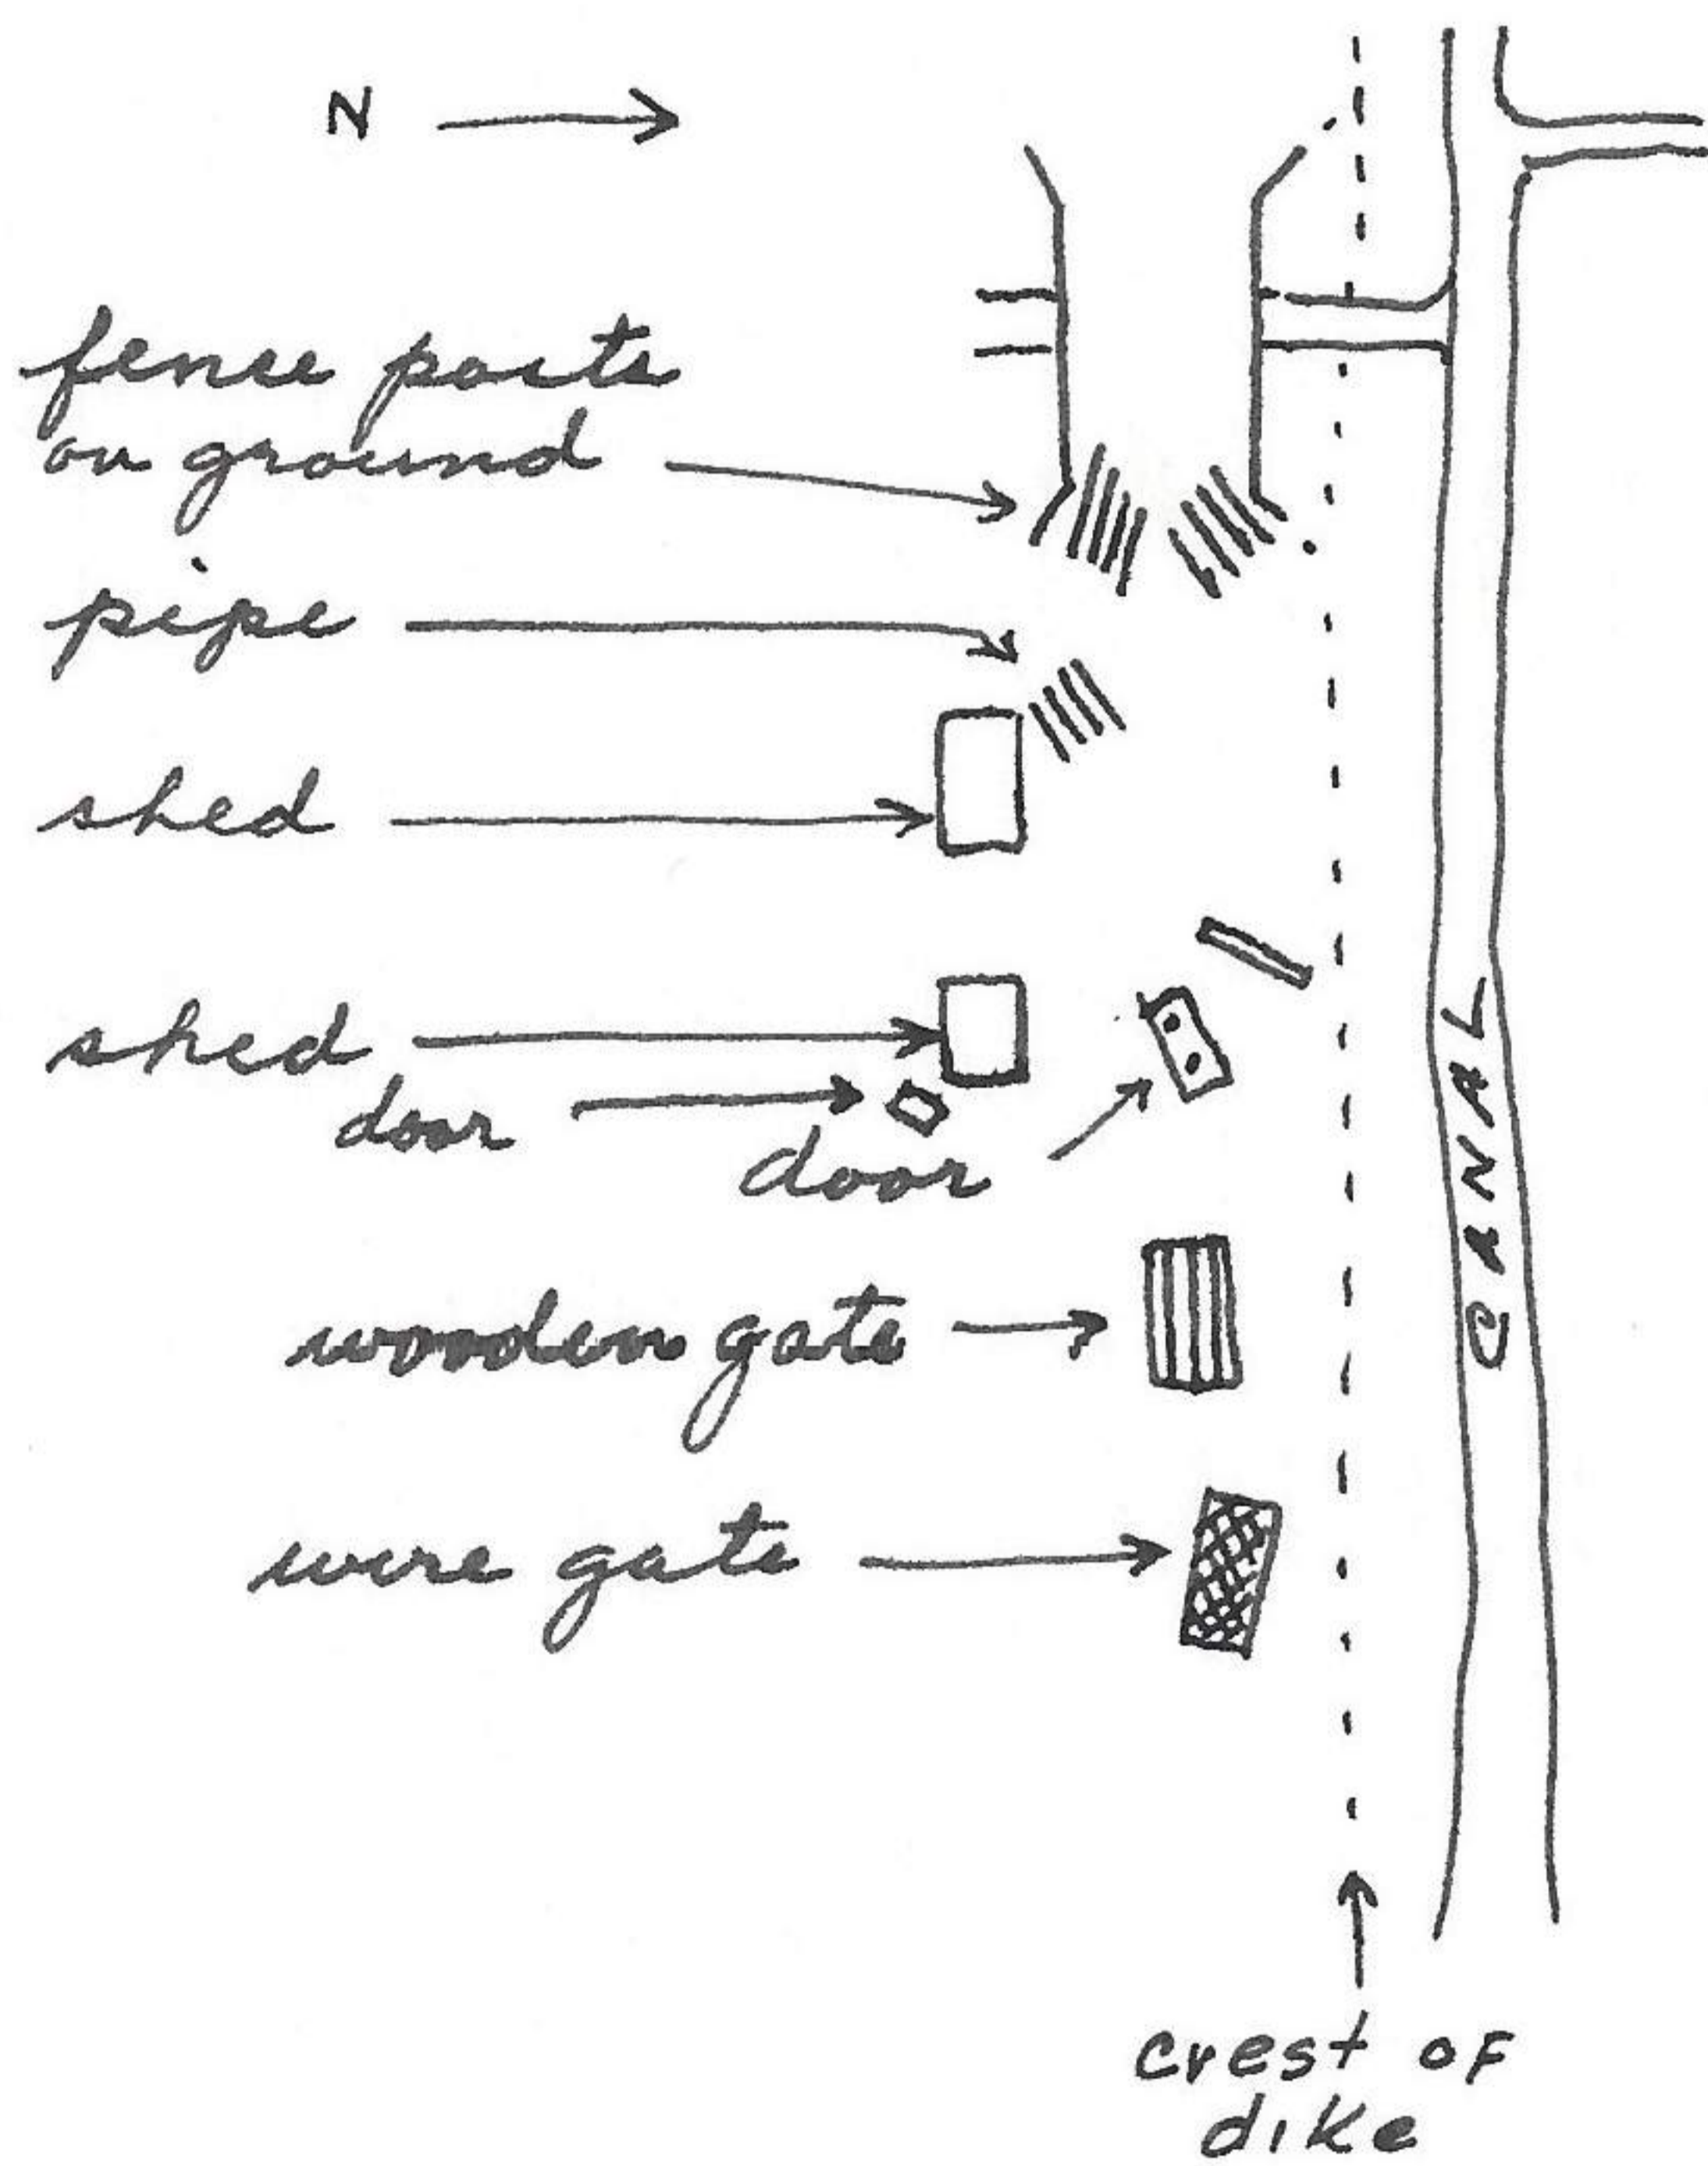 N
fence posts
on ground
pipe
shed
shed
door
door
wooden gate
wire gate
CANAL
crest of
dike